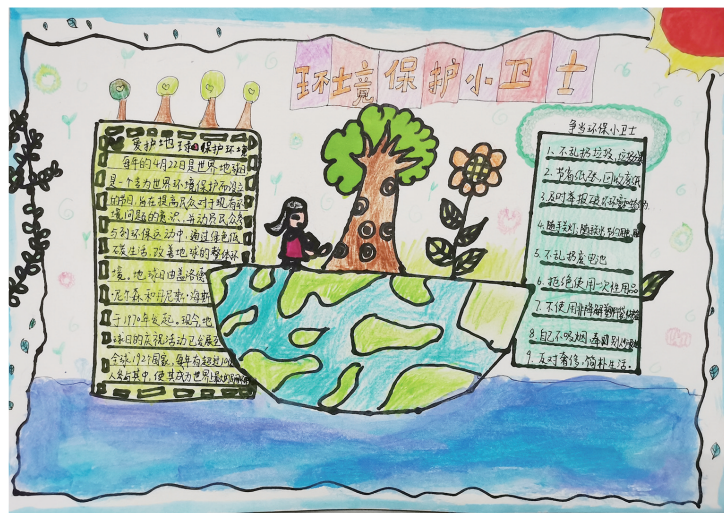 环境保护小卫士
爱护地球 保护环境
每年的4月22日是世界地球日
是一个专为世界环境保护而设立
的节日,旨在提高民众对于现有环
境问题的意识,并动员民众参
与到环保运动中,通过绿色低
碳生活,改善地球的整体环
境。地球日由盖洛德
尼尔森和丹尼斯·海斯
于1970年发起。现今地
球日的庆祝活动已发展至
全球192个国家,每年有超过10亿
人参与其中,使其成为世界上最大的
争当环保小卫士
1、不乱扔垃圾,垃圾
2、节省纸张,回收废纸
3、及时举报破坏环境
4、随手关灯,随手关
5、不乱扔废电池
6、拒绝使用一次性用品
7、不使用非降解塑料
8、自己不吸烟,奉劝别人
9、反对奢侈,简朴生活。